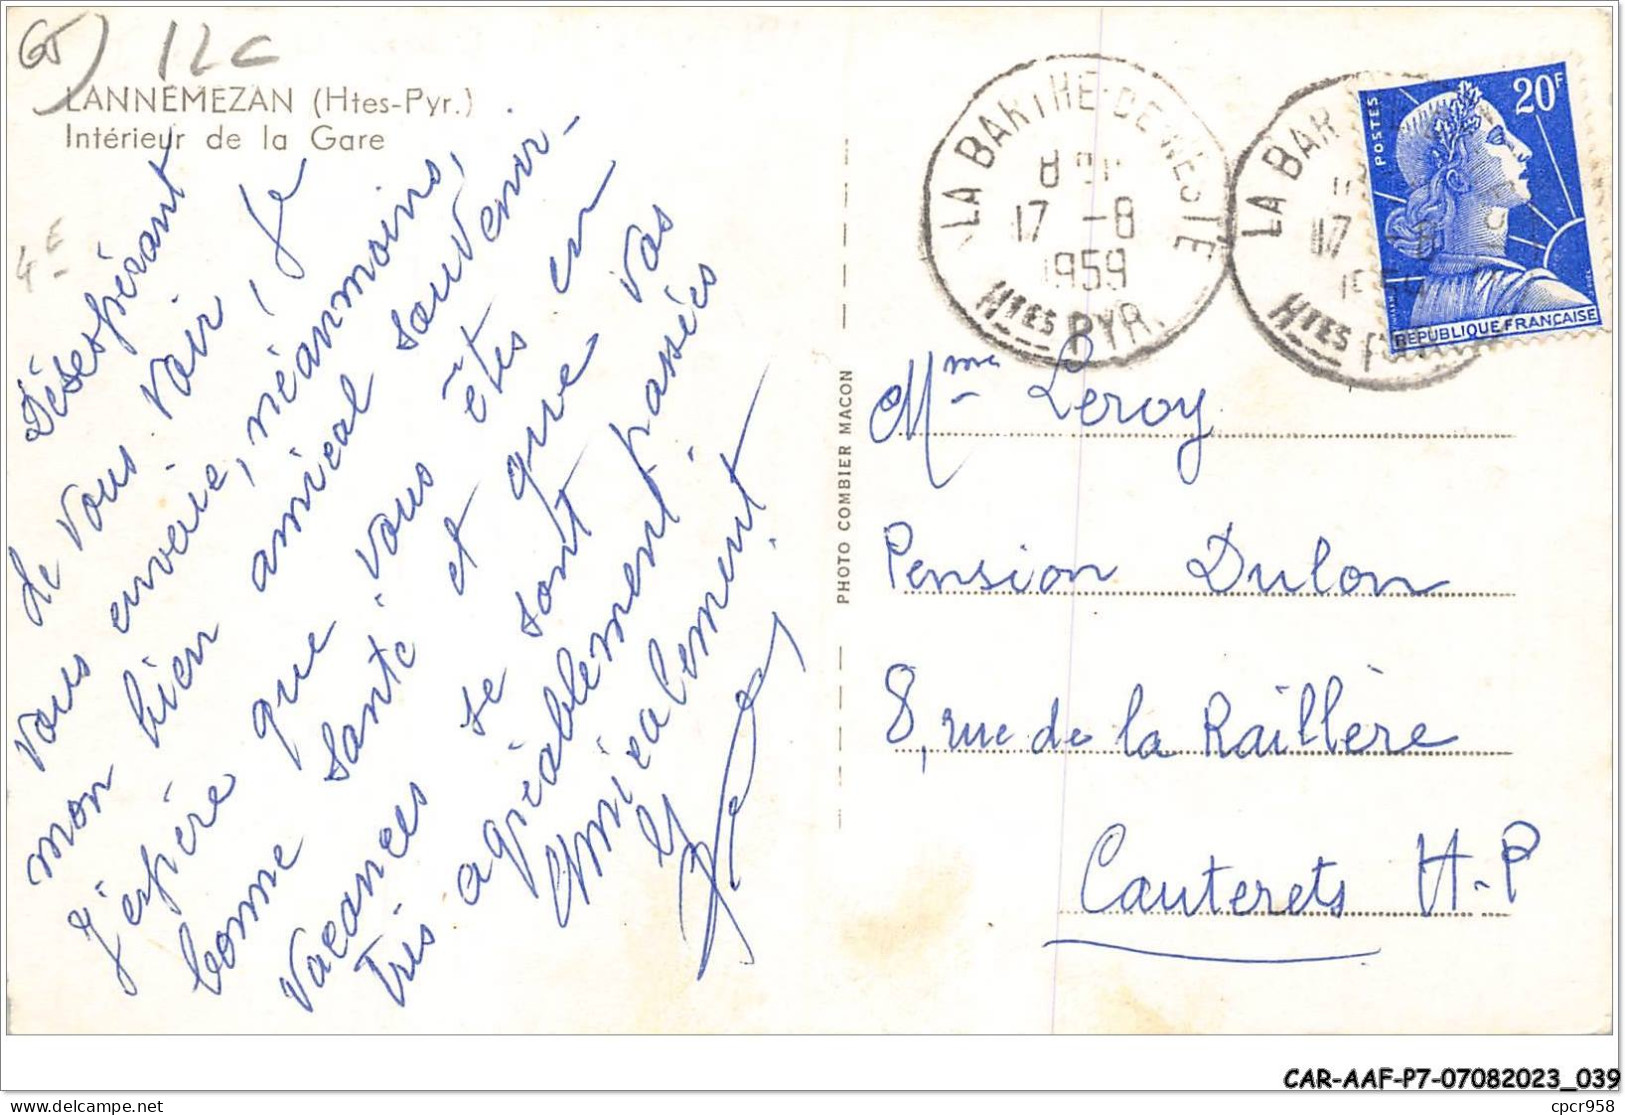 GJ) 12C
LANNEMEZAN (Htes-Pyr.)
Intérieur de la Gare
4€
Désespérant
de vous voir, je
vous envoie, néanmoins,
mon bien amical souvenir-
J'espère que vous êtes en
bonne santé et que vos
vacances se sont passées
très agréablement.
Amicalement
LA BARTHE-DE-NESTE
17 -8
1959
HTES PYR.
LA BAR
17 -8
1959
HTES PYR
20F
POSTES
REPUBLIQUE FRANÇAISE
PHOTO COMBIER MACON
Mme Leroy
Pension Dulon
8, rue de la Raillère
Cauterets H-P
CAR-AAF-P7-07082023_039
delcampe.net
cpcr958